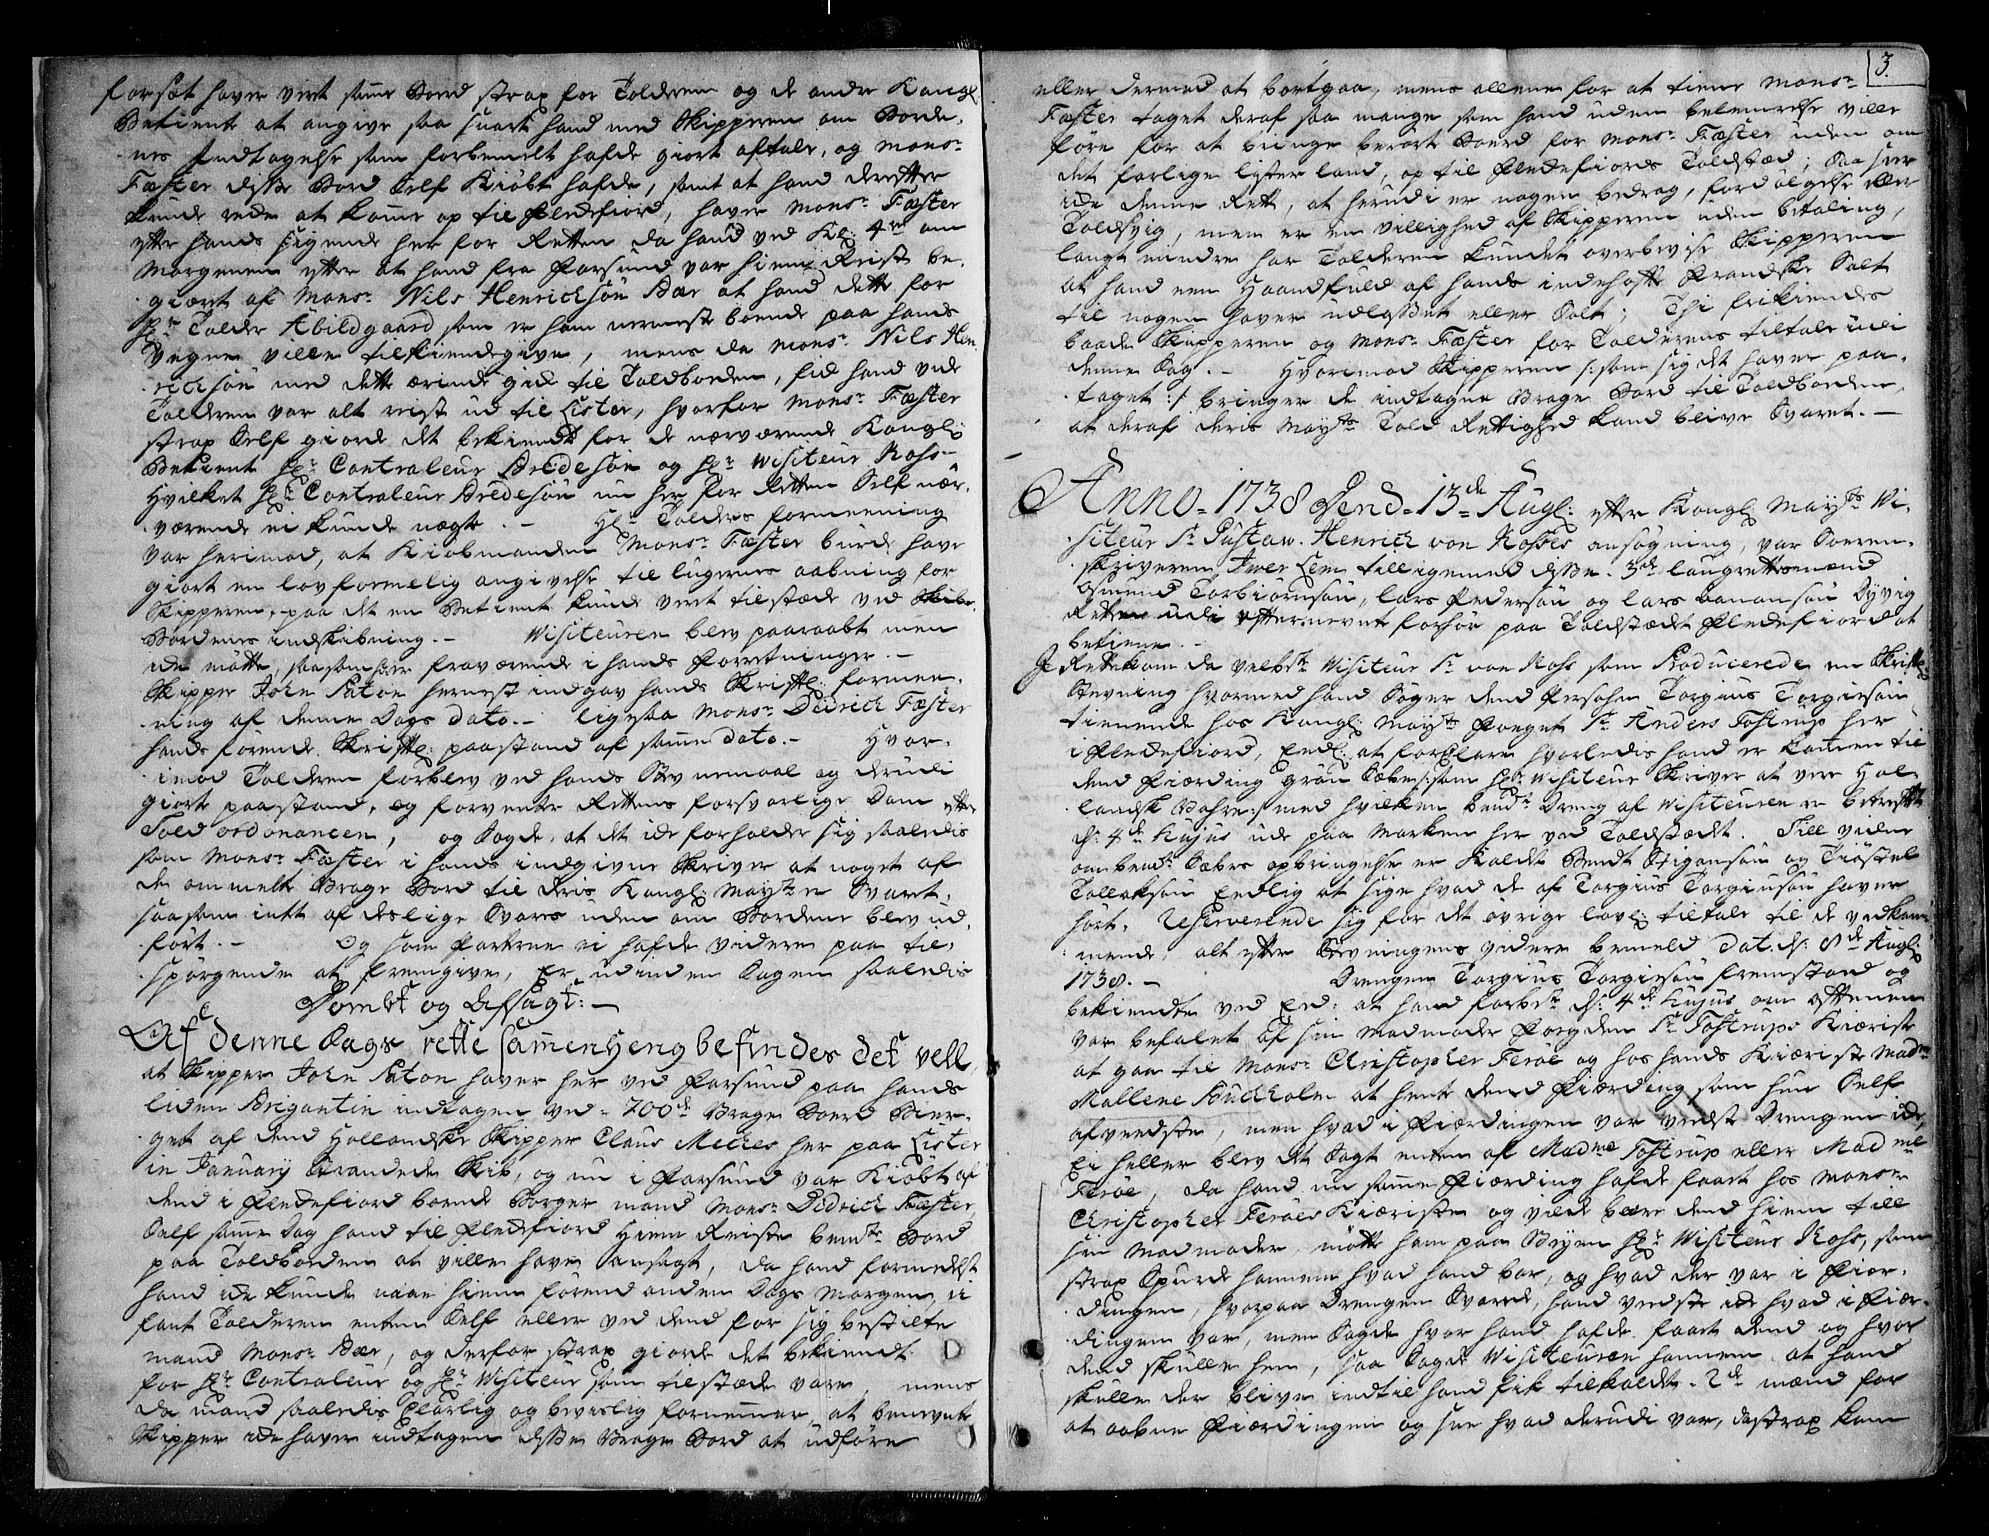 forsæt haver vert samme Bord strax for Tolderen og de andre Kongl:
Betiente at angive saa snart hand med Skipperen om Borde-
nes Indtagelse som forbemelt hafde giort aftale, og Monsr
Fæster disse Bord Self Kiøbt hafde, samt at hand derefter
kunde rede at komme op til Fledefiord, haver Monsr Fæster
efter hands sigende her for Retten da hand ved Kl: 4re om
Morgenen efter at hand fra Farsund var hiem Reist be-
giært af Monsr Nils Henrichsøn Bær at hand dette for
Hr Tolder Abildgaard som er ham nermeste boende paa hands
Vegne ville tilkiendegive, mens da Monsr Nils Hen-
richsøn med dette ærinde gik til Toldboden, fik hand vide
Tolderen var alt reist ud til Lister, hvorfor Monsr Fæster
strax Self giorde det bekiendt for de nærværende Kongl:
Betient Hr Contraleur Bredesøn og Hr Wisiteur Ross-
Hvilket Hr Contraleur Bredesøn nu her for Retten Self nær-
værende ei kunde nægte. - Hr Tolders formeening
var herimod, at Kiøbmanden Monsr Fæster burde have
giort en lovformelig angivelse til lugernes aabning for
Skipperen, paa det en Betient kunde vert tilstæde ved
Bordenes indskibning. - Wisiteuren blev paaraabt men
ide møtte, saasom fraværende i hands Forretninger. -
Skipper John Paton hernest indgav hands Skriftl: formee-
ning af denne Dags dato. - ligesaa Monsr Didrich Fæster
hands førende Skriftl: paastand af samme dato. - Hvor-
imod Tolderen forblev ved hands Stevnemaal og derudi
giorte paastand, og forventer Rettens forsvarlige Dom efter
Told ordonancen, og Sagde, at det ide forholder sig saaledis
som Monsr Fæster i hands indgivne Skriver at noget af
de ommelte Vrage Bord til deris Kongl: Mayts er Svaret,
saasom intt af deslige Vares uden om Bordene blev ud-
ført. - Og som Parterne ei hafde videre paa til-
spørgende at fremgive, Er udinden Sagen saaledis
Dømbt og Afsagt: -
Af denne Sags rette sammenheng befindes det vell
at Skipper John Paton haver her ved Farsund paa hands
liden Brigantin indtagen ved 200de Vrage Bord Bier-
get af dend Hollandske Skipper Claus Meckes her paa Lister
in January Strandede Skib, og nu i Farsund var Kiøbt af
dend i Fledefiord boende Borger mand Monsr Didrich Fæster
Self samme Dag hand til Fledefiord Hiem Reiste bemte Bord
paa Toldboden at ville have ansagt, da hand formedelst
hand ide kunde naae hiem førend anden Dags Morgen, ei
fant Tolderen enten Self eller ved dend for sig bestilte
mand Monsr Bær, og derfor strax giorde det bekiendt
for Hr Contraleur og Hr Wisiteur som tilstæde vare, mens
da mand saaledis klarlig og bevislig fornemmer at benevnte
Skipper ide haver indtagen disse Vrage Bord at udføre
3.
eller dermed at bortgaa, mens allene for at tiene Monsr
Fæster taget deraf saa mange som hand uden belemrelse ville
føre for at bringe berørte Bord for Monsr Fæster uden om
det farlige lister land, op til Fledefiords Toldstæd; Saa seer
ide denne Rett, at herudi er nogen bedrag, fordølgelse eller
Toldsvig, men er en villighed af Skipperen uden betaling,
langt mindre har Tolderen kundet overbevise Skipperen
at hand een Haandfuld af hands indehafte Frandske Salt
til nogen haver udlosset eller Solt; Thi frikiendes
baade Skipperen og Monsr Fæster for Tolderens tiltale udi
denne Sag. - Hvorimod Skipperen /: som sig det haver paa-
taget :/ bringer de indtagne Vrage Bord til Toldboden,
at deraf deris Mayts Told Rettighed kand blive Svaret. -
Anno 1738 Dend 13de Augl: efter Kongl: Mayts Vi-
siteur Sr Gustaw Henrich von Rosses ansøgning, var Soren-
skriveren Iwer Lem tilligemed disse 3de laugrettesmænd
Osmund Torbiørnsøn, Lars Pedersøn og Lars Aanonsøn Dyvig
Retten udi efternevnte forhør paa Toldstædet Fledefiord at
betiene. -
I Rette kom da velbte Wisiteur Sr von Ross som Producerede en Skriftl:
Stevning hvormed hand Søger dend Persohn Torgius Torgiusøn
tienende hos Kongl: Mayts Foeget Sr Anders Tostrup her
i Fledefiord, Endl: at forklare hvorledis hand er kommen til
dend Fierding grøn Sæbe /: som Hr Wisiteur Skriver at vere Hol-
landsk Vahre :/ med hvilken bemte Dreng af Wisiteuren er betreffet
d: 4de Hujus ude paa Marken her ved Toldstædet. Till videre
ombemte Sæbes opbringelse er Kaldet Bendt Stigansøn og Tiøstel
Tollaksøn Endlig at sige hvad de af Torgius Torgiusøn haver
hørt, Reserverende sig for det øvrige lovl: tiltale til de vedkom-
mende, alt efter Stevningens videre bemeld Dat: d: 8de Augl:
1738. - Drengen Torgius Torgiusøn fremstoed og
bekiendte ved Eed: at hand forbte d: 4de Hujus om Eftenen
var befalet af sin Madmoder Fogden Sr Tostrups Kiæriste
at gaa til Monsr Christopher Ferøe og hos hands Kiæriste Madme
Mallene Buchholm at hente dend Fierding som hun Self
afveedste, men hvad i Fierdingen var veedst Drengen ide,
Ei heller blev det Sagt enten af Madme Tostrup eller Madme
Ferøe, Da hand nu samme Fierding hafde faaet hos Monsr
Christopher Ferøes Kiæriste og vilde bære dend hiem till
sin Madmoder, møtte ham paa Veyen Hr Wisiteur Ross, som
strax Spurde hannem hvad hand bar, og hvad der var i Fier-
dingen, hvorpaa Drengen Svarede, hand veedste ide hvad i Fier-
dingen var, men Sagde hvor hand hafde faaet dend og hvor
dend skulle hen, saa Sagde Wisiteuren hannem at hand
skulle der blive indtil hand fik tilkaldet 2de mænd for
at aabne Fierdingen og see hvad derudi var, da strax kom